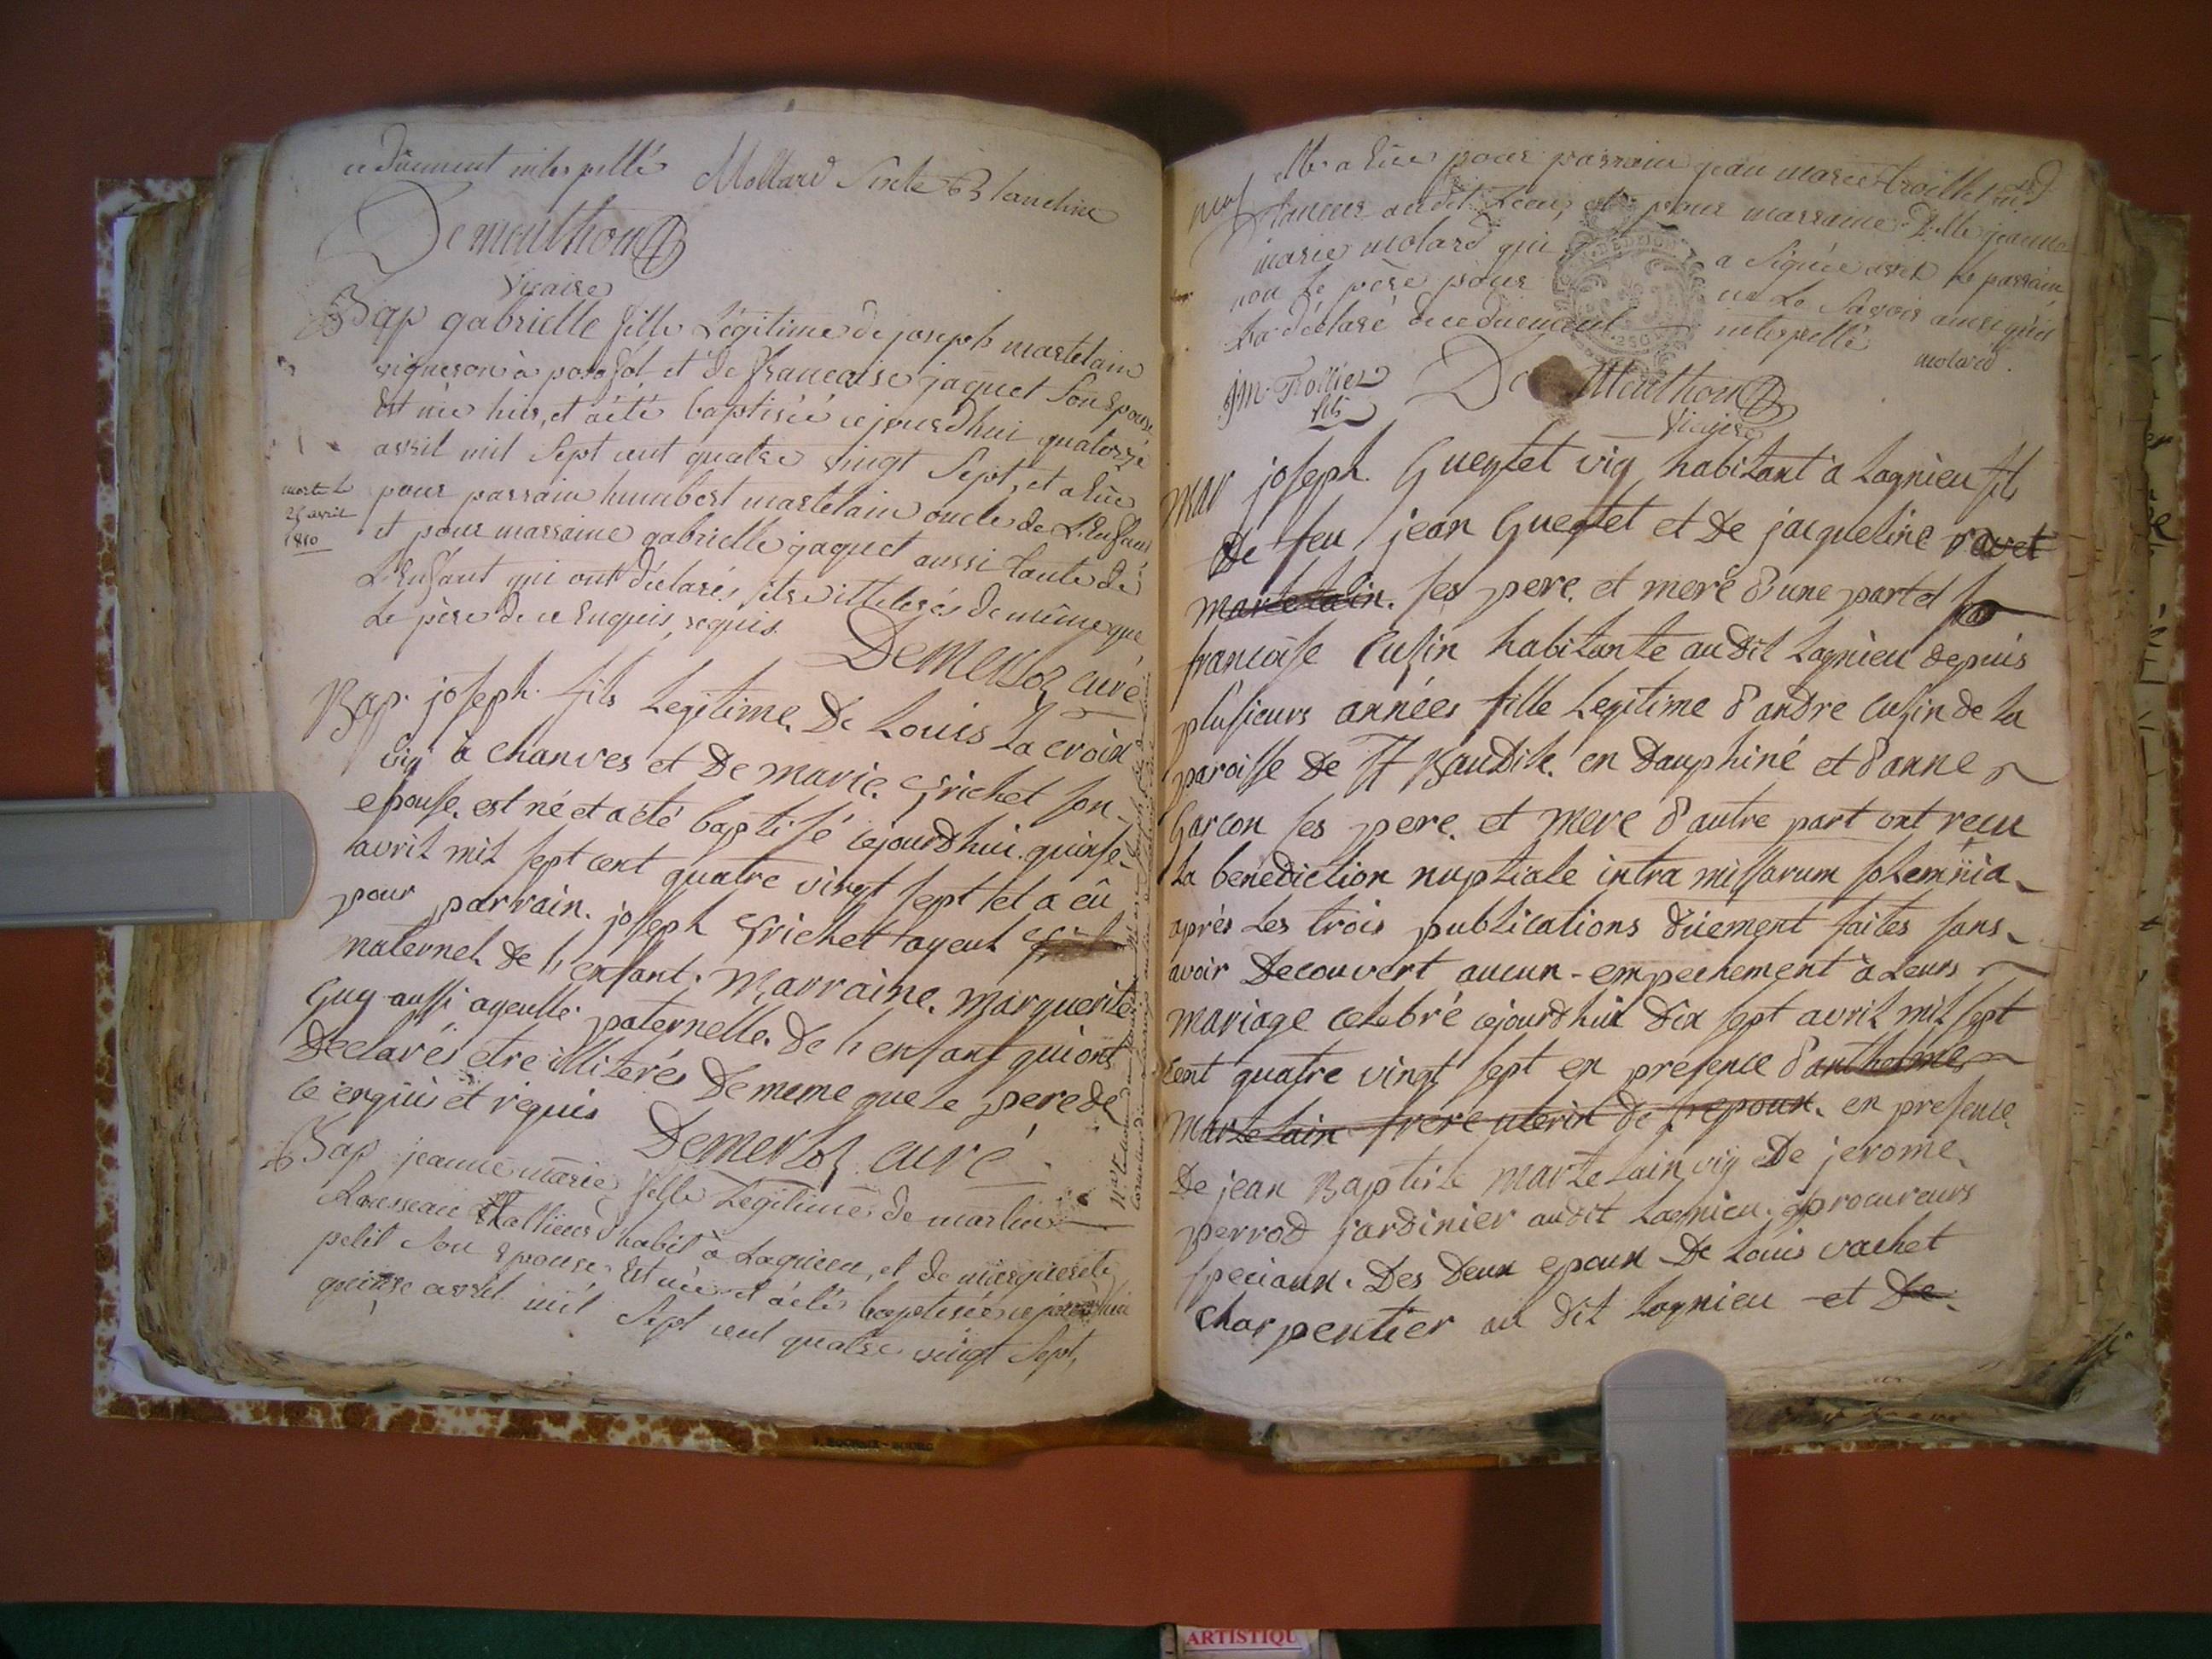 ce dûement interpellé Mollard Sirete Blanchine
Demeuthon
Vicaire
Bap gabrielle fille Légitime de joseph martelain
vigneron à posafol et de francoise jaquet Son Epouse
Est née hier, et a été baptisée ce jourdhui quatorze
avril mil Sept cent quatre vingt Sept, et a Eüe
pour parrain humbert martelain oncle de L'Enfant
et pour marraine gabrielle jaquet aussi tante de
L'Enfant qui ont déclarés etre illiterés de même que
Le père de ce Enquis, requis. Demerloz curé
morte le
25 avril
1810
Bap. joseph. fils Legitime De Louis La croix
vig à chanves et De marie frichet son
epouse. est né et a été baptisé cejourdhui quinse
avril mil sept cent quatre vingt sept et a eû
pour parrain. joseph frichet ayeul
maternel De l'enfant. Marraine. marguerite
Guy aussi ayeulle paternelle. De l'enfant qui ont
Declarés etre illiterés De meme que Le pere de
ce enquis et requis Demerloz curé
Bap jeanne marie fille Légitime de martin
Rousseau habit à Lagnieu, et de marguerite
petit Son Epouse, Est née et a été baptisée ce jourdhui
quinze avril mil Sept cent quatre vingt Sept,
elle a Eüe pour parrain jean marie trollier
audit Lieu, et pour marraine Dlle jeanne
marie molard qui a Signée avec le parrain
non le père pour ne Le Savoir ainsi qu'il
L'a déclaré de ce duement interpellé
molard.
jm. Trollier
fils
De Meuthon
Vicaire
Mar joseph. Gueytet vig habitant à Lagnieu fils
De feu jean Gueytet et De jacqueline ravet
martelain. ses pere. et mere d'une part et
francoise Cusin habitante audit Lagnieu depuis
plusieurs années fille Legitime d'andre Cusin de La
paroisse De St Baudile en Dauphiné et d'anne
Garcon ses pere. et mere d'autre part ont recu
La benediction nuptiale intra missarum solemnia
aprés Les trois publications düement faites sans
avoir Decouvert aucun empechement à Leurs
mariage celebré cejourdhui Dix sept avril mil sept
cent quatre vingt sept en presence d'anthelme
martelain frere uterin de l'epoux. en presence
De jean Baptiste martelain vig De jerome
perrod jardinier audit Lagnieu. procureurs
speciaux. Des Deux epoux De Louis vachet
charpentier au dit Lagnieu et De
ARTISTIQU